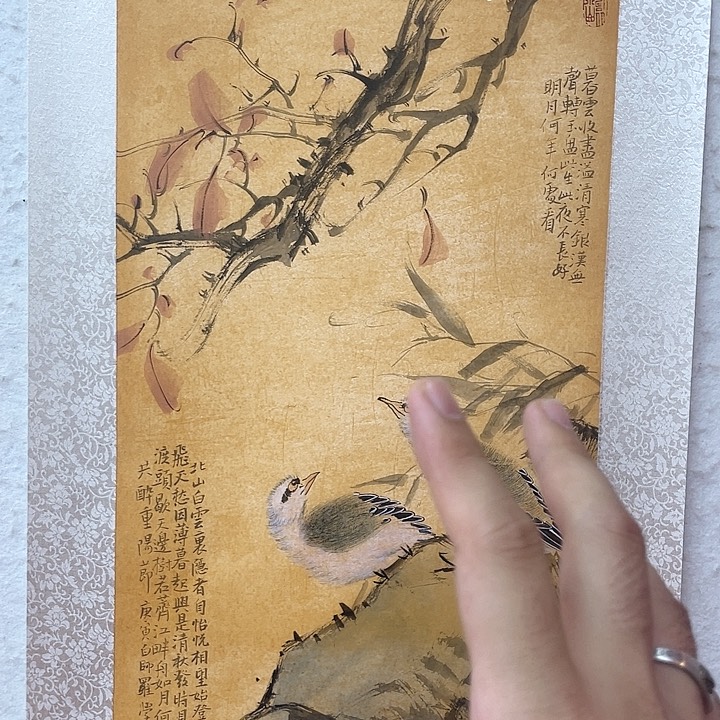 暮雲收盡溢清寒銀漢無
聲轉玉盤此生此夜不長好
明月何年何處看
北山白雲裏隱者自怡悅相望始登
飛天愁因薄暮起興是清秋發時見
渡頭歇天邊樹若薺江畔舟如月何
共醉重陽節 庚寅白師羅